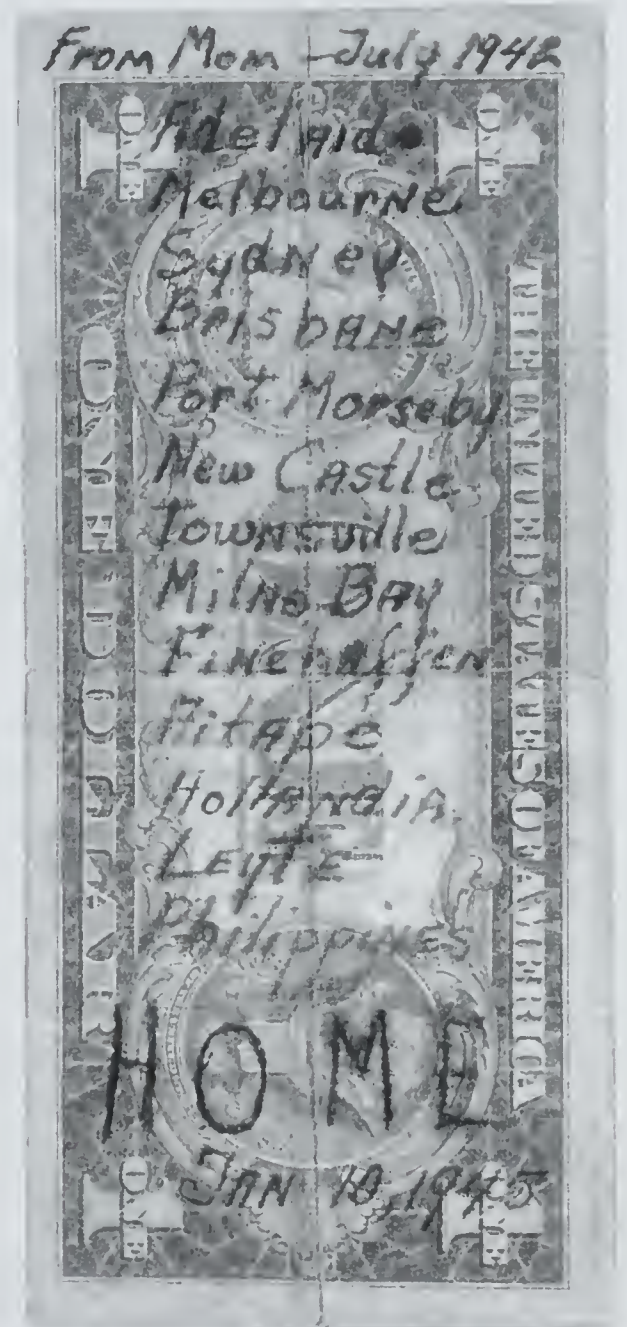 From Mom - July 1942
Adelaide
Melbourne
Sydney
Brisbane
Port Morseby
New Castle
Townsville
Milne Bay
Finchaffen
Aitape
Hollandia
Leyte
Philippines
HOME
Jan 10, 1945
ONE
ONE
ONE DOLLAR
THE UNITED STATES OF AMERICA
ONE
ONE